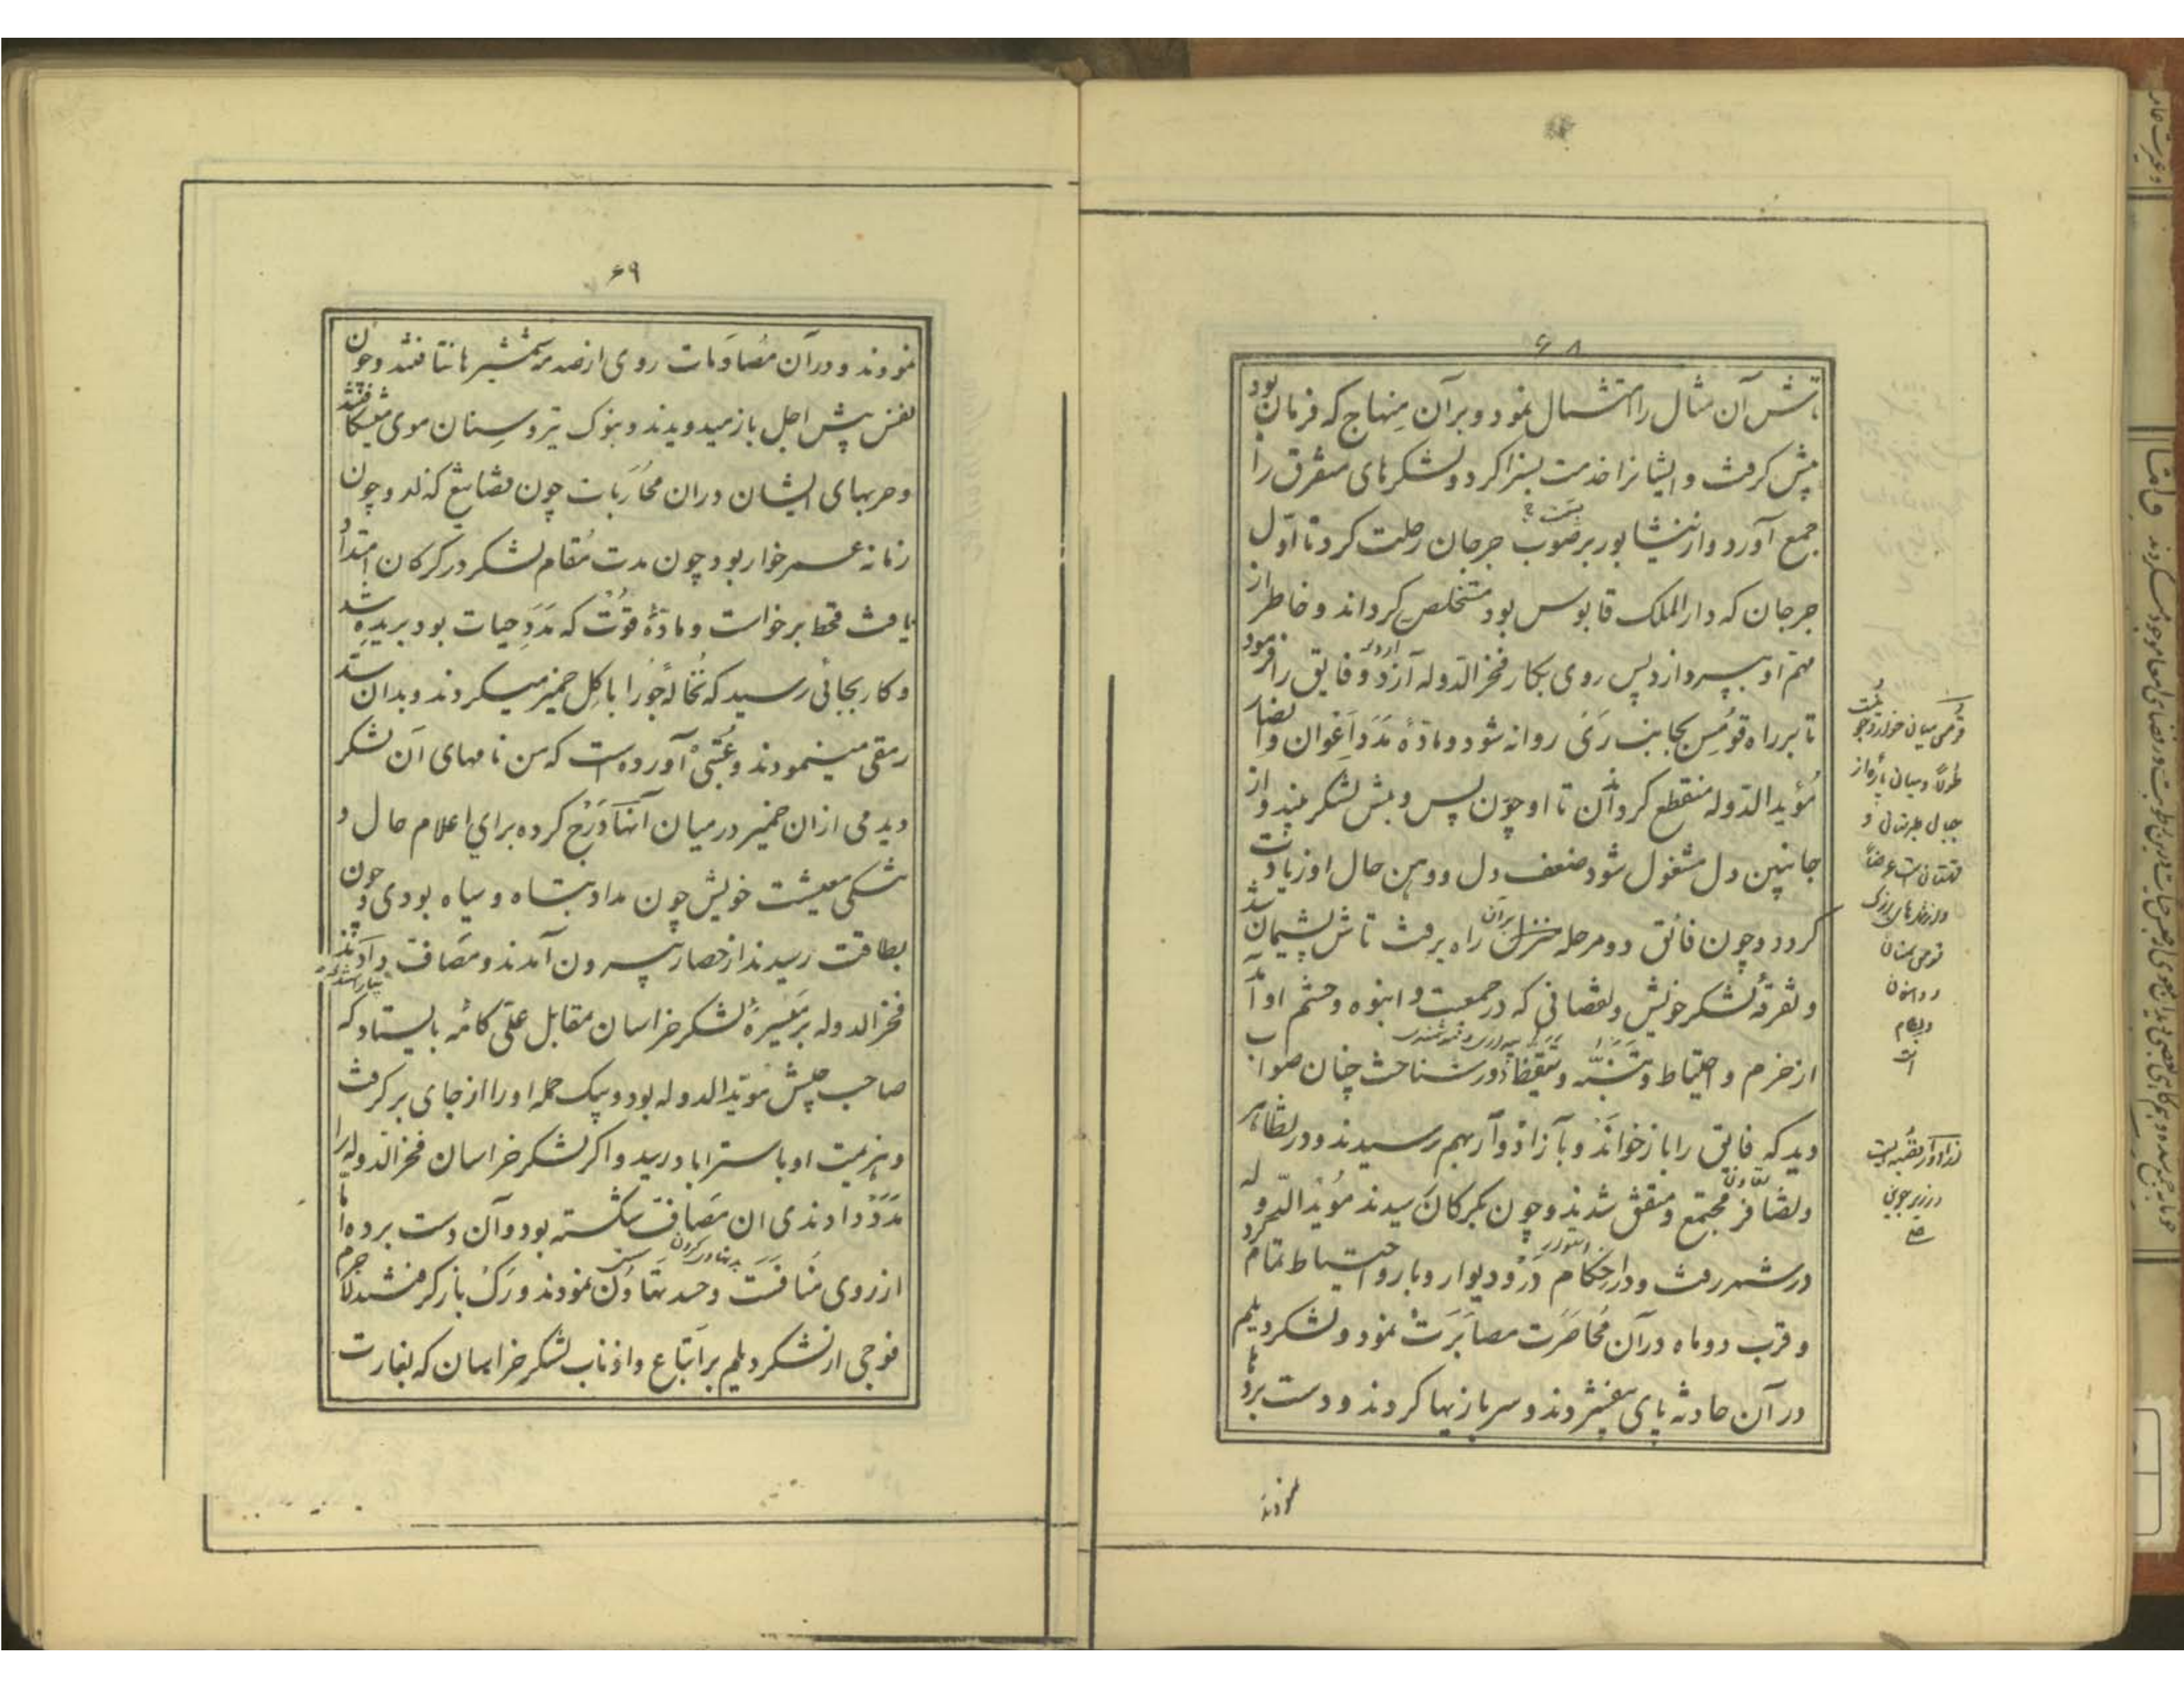 ۶۸
تاش آن مثال را امتثال نمود و بر آن منهاج که فرمان بود
پیش گرفت و ایشانرا خدمت بسزا کرد و لشکرهای متفرق را
جمع آورد و از نیشابور بر صوب جرجان رحلت کرد تا اول
جرجان که دار الملک قابوس بود مستخلص گرداند و خاطر از
مهم او بپردازد پس روی بکار فخر الدوله آرد و فایق را فرمود
تا بر راه قومس بجانب رَی روانه شود و مادهٔ مَدَد اَعوان و انصار
مؤید الدوله منقطع گرداند تا او چون پس و پیش لشکر بیند و از
جانبین دل مشغول شود ضعف دل و وهن حال او زیادت
گردد و چون فائق دو مرحله بر آن راه برفت تاش پشیمان شد
و تفرقهٔ لشکر خویش و نقصانی که در جمعیت و انبوه و حشم او آمد
از حزم و احتیاط و تنبّه و تیقظ دور شناخت چنان صواب
دید که فائق را باز خواند و بآزاذوار بهم رسیدند و در تظاهر
تعاون
و تضافر مجتمع و متفق شدند و چون بگرگان رسیدند مؤید الدوله
استوار
در شهر رفت و در اِحکام دَر و دیوار و بارو احتیاط تمام کرد
و قرب دو ماه در آن مُحاصَرت مصابَرَت نمود و لشکر دیلم
در آن حادثه پای بیفشردند و سربازیها کردند و دست بردها
نمودند
قومس میان خوار و
طولاً و میان
جبال طبرستان و
قهستان است عرضاً
و بسطام
است
ازاذوار قصبه ایست
در زیر جوین
۶۹
نمودند و در آن مُصادَمات روی از صدمهٔ شمشیرها نتافتند و چون
نفس پیش اجل باز میدویدند و بنوک تیر و سِنان موی میشکافتند
و حربهای ایشان در ان مُحارَبات چون قضا تیغ گذار و چون
زمانه عمر خوار بود چون مدت مُقام لشکر در گرگان امتداد
یافت قحط برخواست و مادهٔ قوّت که مَدَدِ حیات بود بریده شد
و کار بجائی رسید که نُخالهٔ جُو را با گِل خمیر میکردند و بدان سدّ
رمقی مینمودند و عُتبی آورده است که من نامهای آن لشکر
دیدمی ازان خمیر در میان آنها دَرْج کرده برای اعلام حال و
تنگی معیشت خویش چون مداد تباه و سیاه بودی و چون
بطاقت رسیدند از حصار بیرون آمدند و مَصاف دادند
فخر الدوله بر مَیسرهٔ لشکر خراسان مقابل علی کامه بایستاد که
صاحب جیش مؤید الدوله بود و بیک حمله او را از جای بر گرفت
و هزیمت او باستراباد رسید و اگر لشکر خراسان فخر الدوله را
مَدَدْ دادندی ان مَصاف شکسته بود و آن دست برده اما
از روی مُنافَسَت و حسد تهاوُن نمودند و رَگ باز گرفتند لاجرم
فوجی از لشکر دیلم بر اَتباع و اذناب لشکر خراسان که بغارت